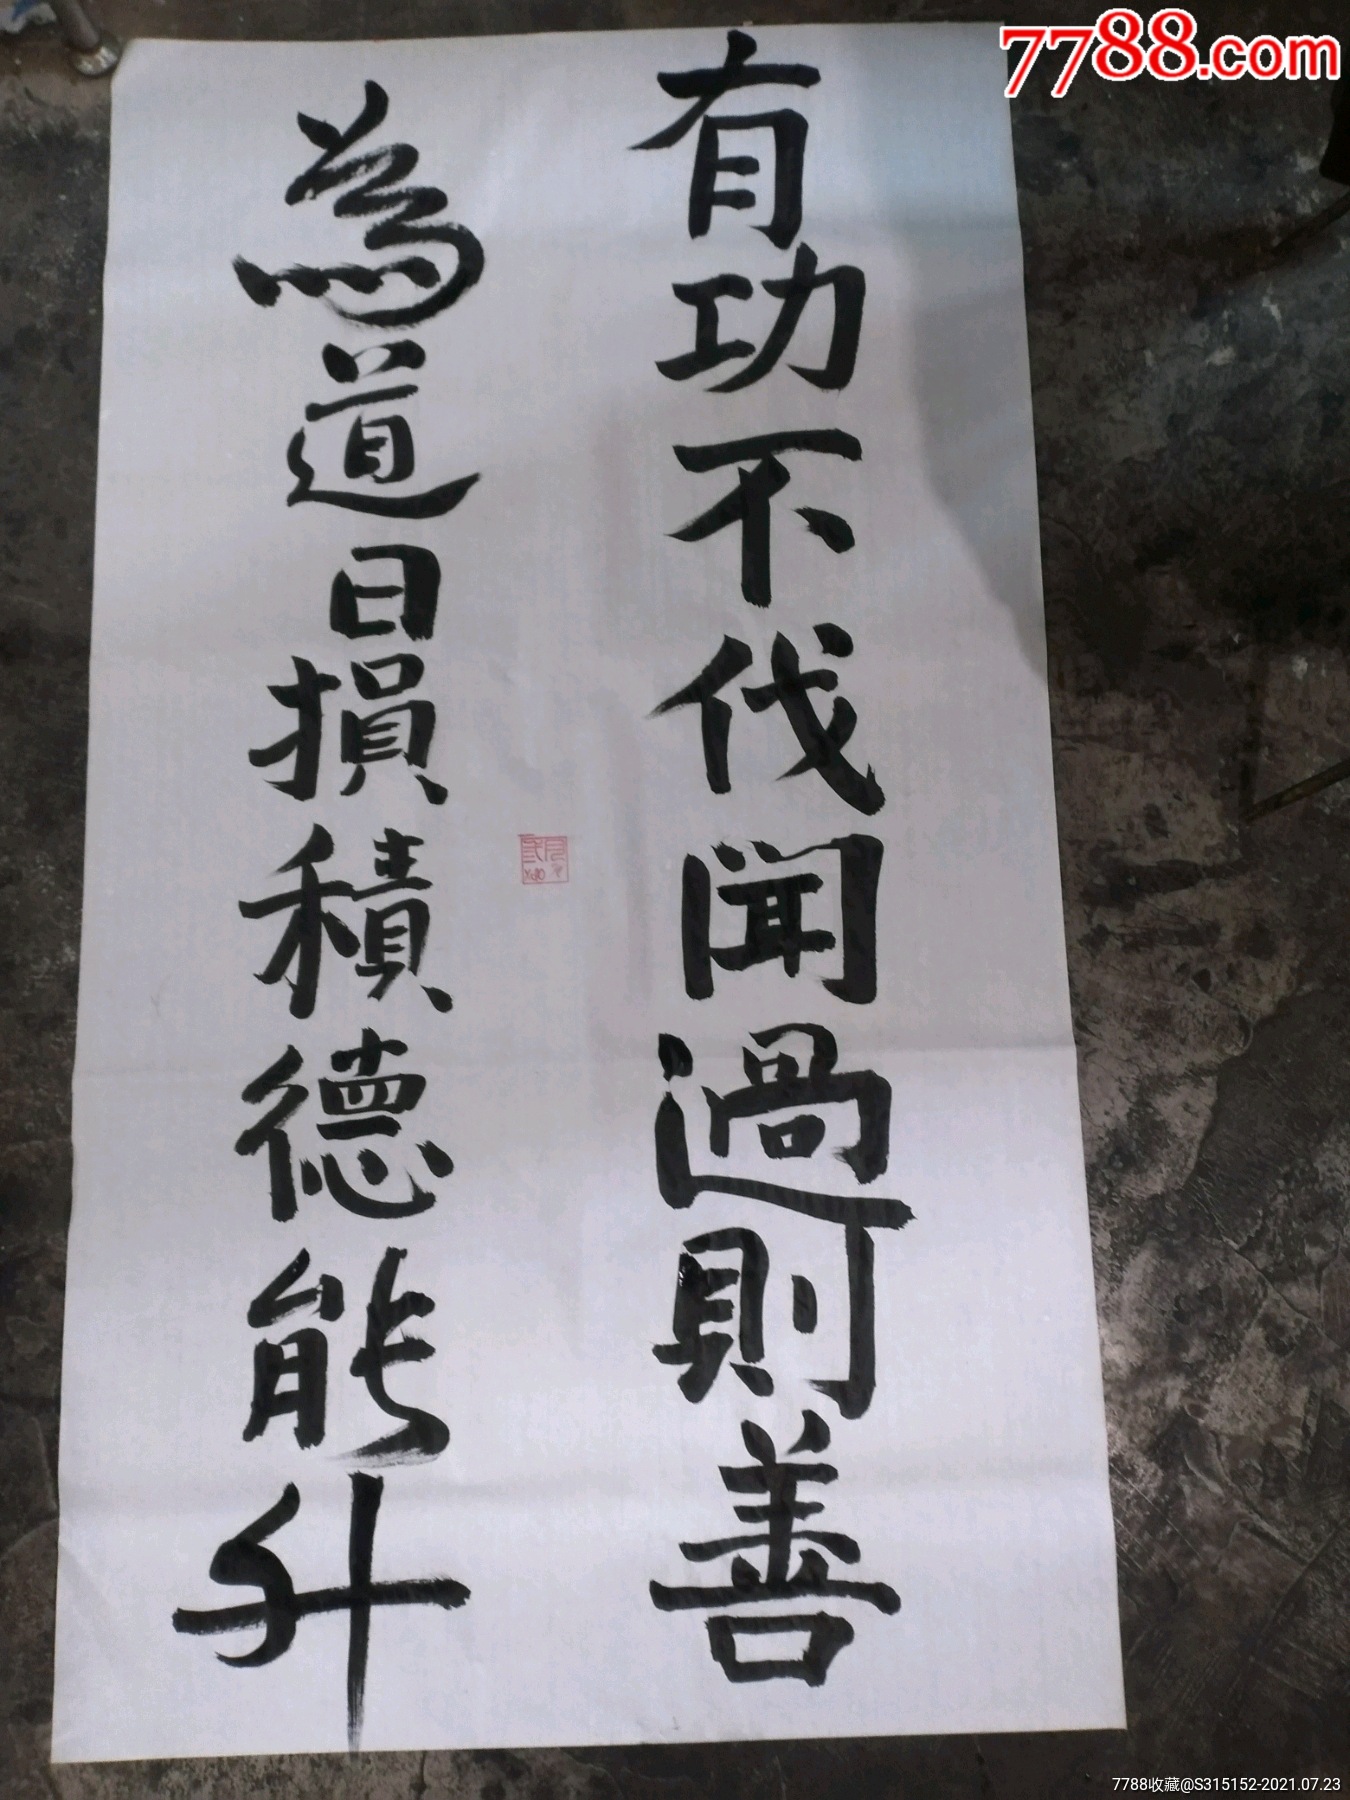 7788.com
有功不伐闻過則善
為道日損積德能升
7788收藏@S315152-2021.07.23